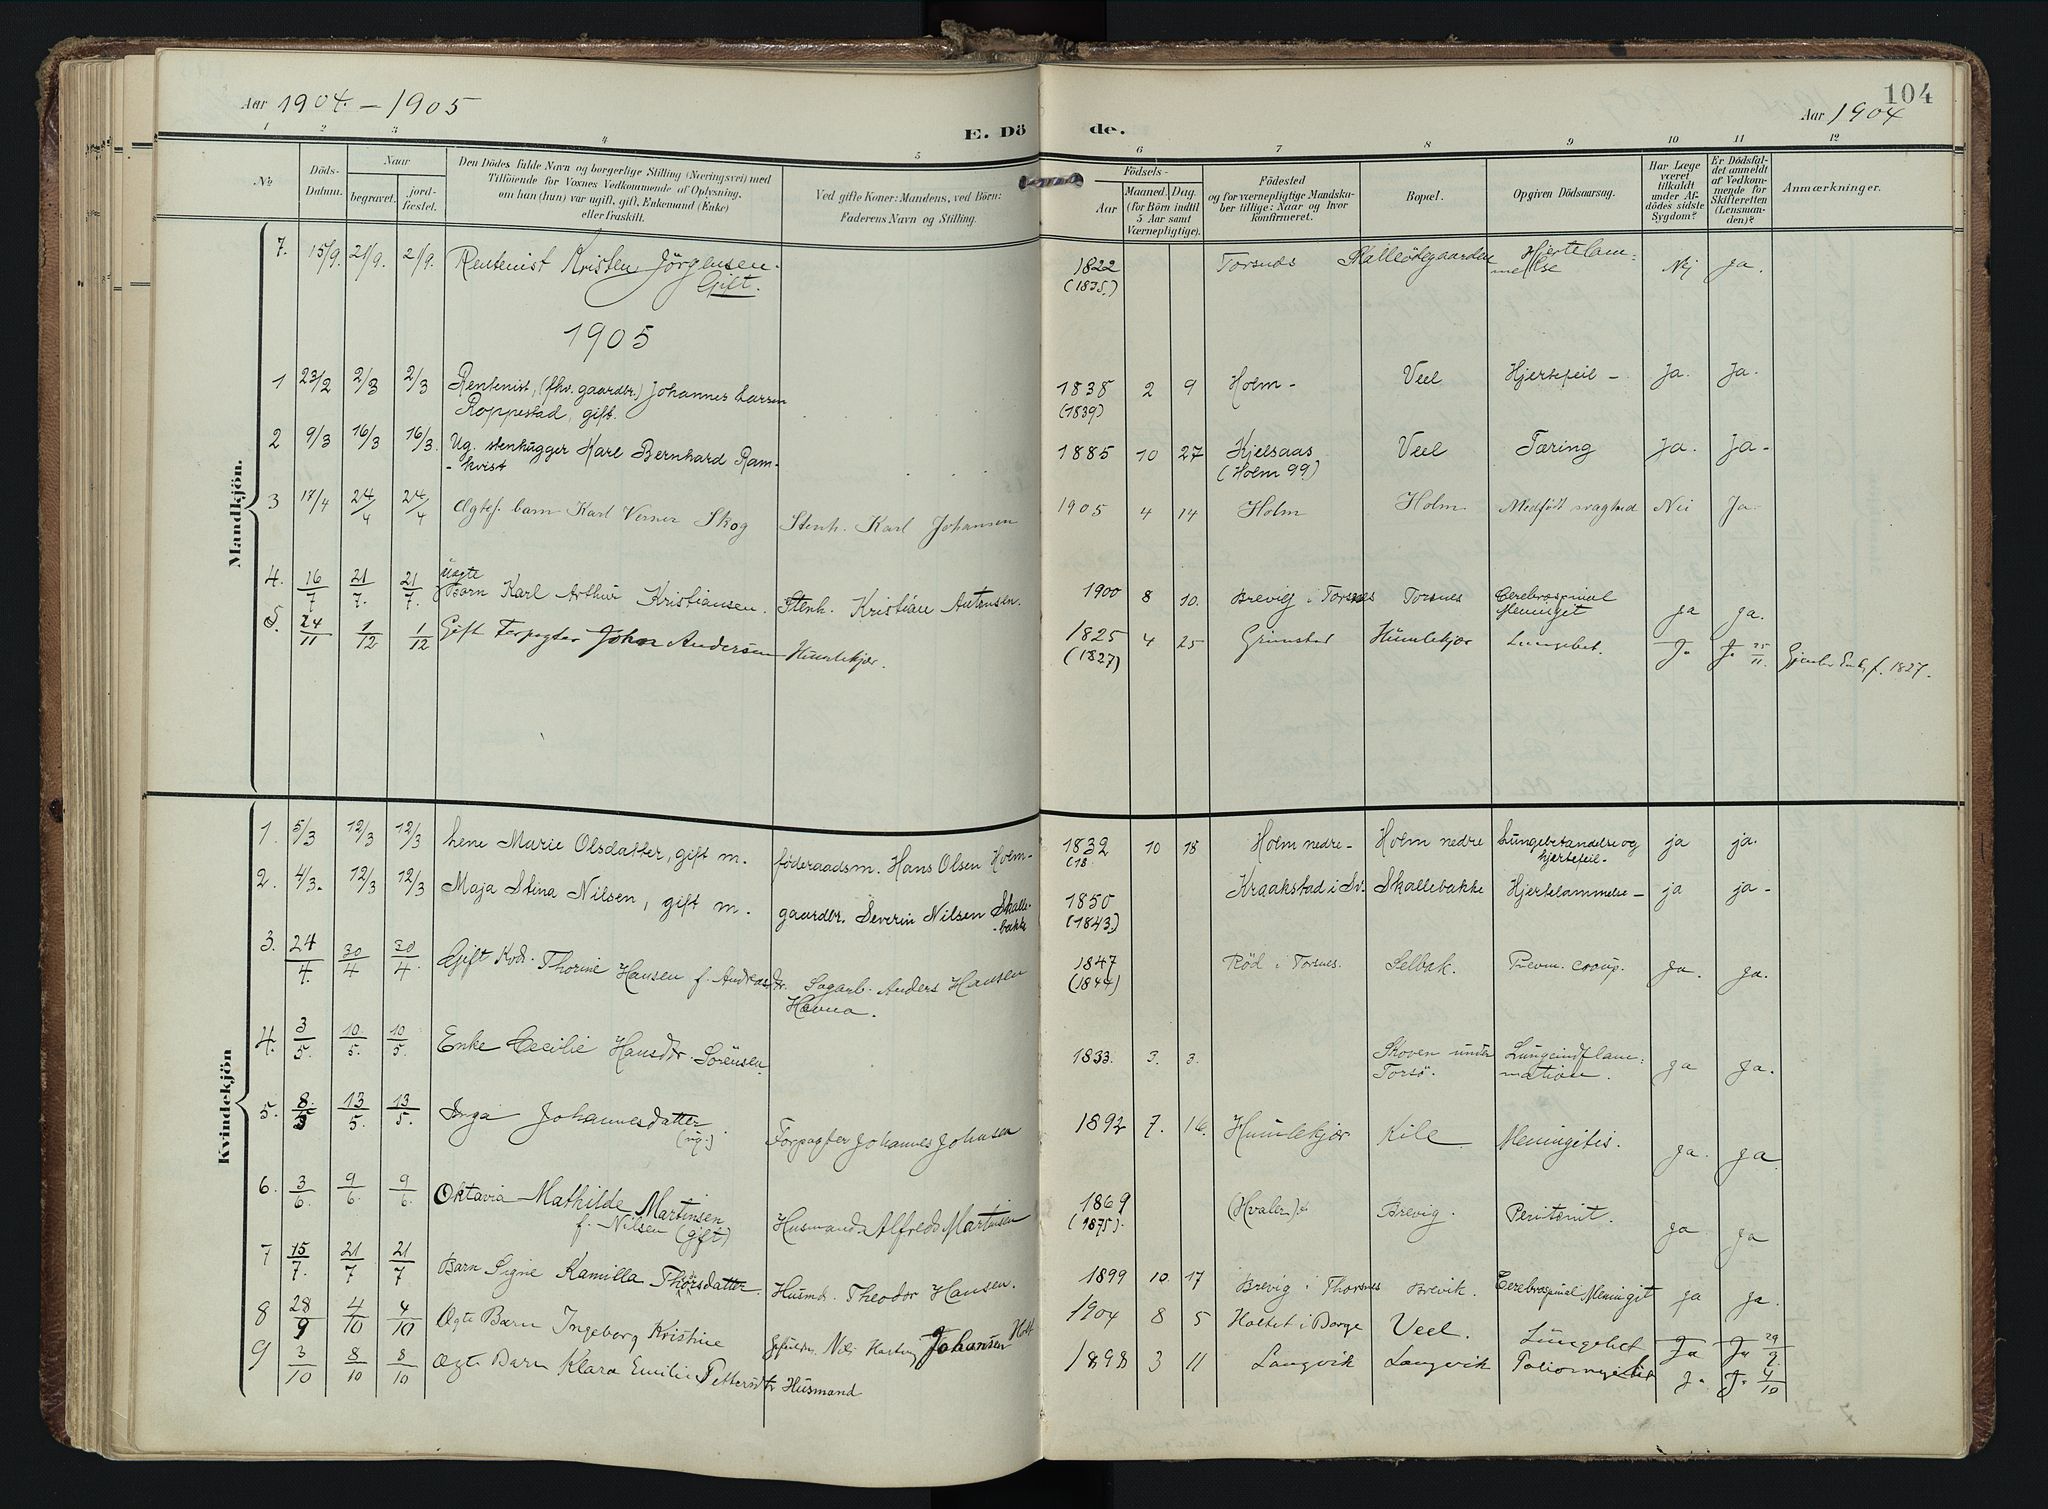 Aar 1904. – 1905
104
Aar 1904
E. Dö de.
1 2 3 4 5 6 7 8 9 10 11 12
№
Döds-Datum.
Naar
begravet.
jord-fæstet.
Den Dödes fulde Navn og borgerlige Stilling (Næringsvei) med
Tilföiende for Voxnes Vedkommende af Oplysning,
om han (hun) var ugift, gift, Enkemand (Enke)
eller fraskilt.
Ved gifte Koner: Mandens, ved Börn:
Faderens Navn og Stilling.
Födsels-
Aar
Maaned. Dag.
(for Börn indtil
5 Aar samt
Værnepligtige).
Födested
og for værnepligtige Mandska-
ber tillige: Naar og hvor
konfirmeret.
Bopæl.
Opgiven Dödsaarsag.
Har Læge
været
tilkaldt
under Af-
dödes sidste
Sygdom?
Er Dödsfal-
det anmeldt
af Vedkom-
mende for
Skifteretten
(Lensman-
den)?
Anmærkninger.
Mandkjön.
7. 15/9. 21/9. 21/9. Rentenist Kristen Jörgensen. Gift. 1822 (1835.) Torsnes Skalleödegaarden Hjertelam:melse Nej Ja.
1905
1 23/2 2/3 2/3 Rentenist, (fhv. gaardbr.) Johannes Larsen Roppestad, gift. 1838 (1839) 2 9 Holm - Veel Hjertefeil - Ja. Ja.
2 9/3 16/3 16/3. Ug. stenhugger Karl Bernhard Ram-kvist 1885 10 27 Kjelsaas (Holm 99) Veel Tæring Ja. Ja -
3 17/4 24/4 24/4 Ægtef. barn Karl Verner Skog Stenh. Karl Johansen 1905 4 14 Holm Holm Medfödt svaghed Nei Ja.
4. 16/7 21/7. 21/7. Uægte Barn Karl Arthur Kristiansen. Stenh. Kristian Antonsen. 1900 8 10. Brevig i Torsnes Torsnes Cerebrospinal Meninget ja ja.
5. 24/11 1/12 1/12 Gift Forpagter John Andersen Humlekjær. 1825 (1827) 4 25 Grimstad Humlekjær Lungebet. Ja Ja 25/11. f. 1827.
Kvindekjön
1. 5/3 12/3 12/3 Lene Marie Olsdatter, gift m. föderaadsm. Hans Olsen Holm- 1832 (18 10 18 Holm nedre - Holm nedre Lungebetændelse og hjertefeil - ja ja.
2. 4/3. 12/3 12/3 Maja Stina Nilsen, gift m. gaardbr. Severin Nilsen Skalle-bakke 1850 (1843.) Kraakstad i Sv. Skallebakke Hjertelammelse - ja ja -
3. 24/4. 30/4 30/4. Gift Kvd. Thorine Hansen f. Andreasdtr. Sagarb. Anders Hansen Havna. 1847 (1844) Röd i Torsnes. Selbak. Pnevm. croup. Ja. Ja.
4. 3/5. 10/5. 10/5 Enke Cecilie Hansdtr. Sörensen. 1833. 3. 3. Skoven under Torsö. Lungeindflam:mation. ja ja.
5. 8/5 13/5. 13/5. Inga Johannesdatter (ug.) Forpagter Johannes Johnsen 1892 7. 16. Humlekjær Kile Meningitis. Ja. Ja
6. 3/6. 9/6. 9/6. Oktavia Mathilde Martinsen f. Nilsen (gift) Husmand Alfred Martinsen 1869 (1875). (Hvaler) Brevig. Peritonit. Ja Ja
7 15/7. 21/7 21/7 Barn Signe Kamilla Thorsdatter. Husmd. Theodor Hansen. 1899 10. 17 Brevig i Thorsnes Brevik. Cerebrospinal Meningit ja ja.
8 28/9 4/10 4/10 Ægte Barn Ingeborg Kristine Johansen Holt 1904 8 5 Holtet i Borge Veel. Lungebet Ja Ja 29/9.
9 3/10 8/10 8/10 Ægte Barn Klara Emilie Pettersdtr Husmand 1898 3 11 Langvik Langvik Poliomyelit Ja Ja 4/10